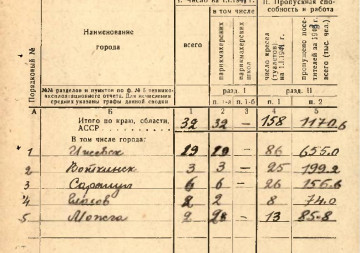 I. Число на I.I.194 г.
II. Пропускная спо-
собность и работа
в том числе
Порядковый №
Наименование
города
всего
парикмахерских
парикмахерских школ
число кресел (туалетов) на I.I.194 г.
пропущено посетителей за 194 г. всего (тыс. чел.)
№№ разделов и пунктов по ф. № 5 технико-
эксплоатационного отчета. Для исчисления
средних указаны графы данной сводки
разд. I
разд. II
п. 1-а
п. 1-б
п. 1
п. 2
А Б 1 2 3 4 5
Итого по краю, области, АССР 32 32 — 158 1170.6
В том числе города:
1 Ижевск 19 — 86 655.0
2 Воткинск 3 3 — 25 199.2
3 Сарапул 6 6 — 26 156.6
4 Глазов 2 2 8 74.0
5 Можга 2 — 13 85.8